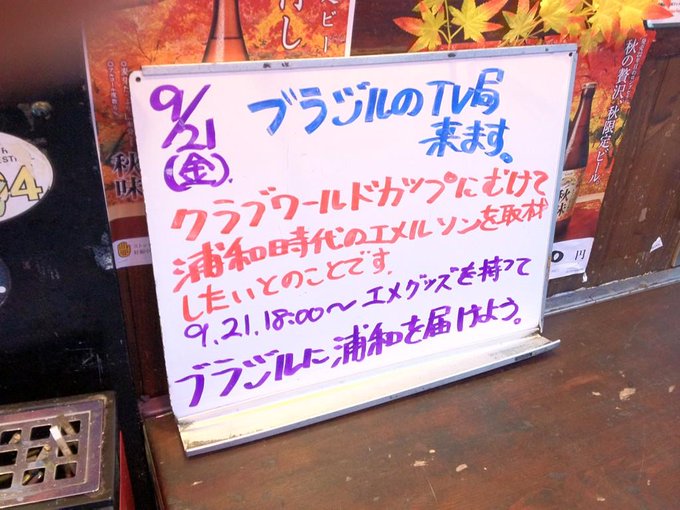 9/21
(金)
ブラジルのTV局
来ます。
クラブワールドカップにむけて
浦和時代のエメルソンを取材
したいとのことです。
9.21.18:00〜エメグッズを持って
ブラジルに浦和を届けよう。
秋の贅沢、秋限定ビール
秋味
円